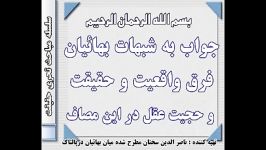 بسم الله الرحمان الرحیم
جواب به شبهات بهائیان
فرق واقعیت و حقیقت
و حجیت عقل در این مصاف
تهیه کننده : ناصر الدین سخنان مطرح شده میان بهائیان درپالتاک
سلسله مباحث تحری حقیقت